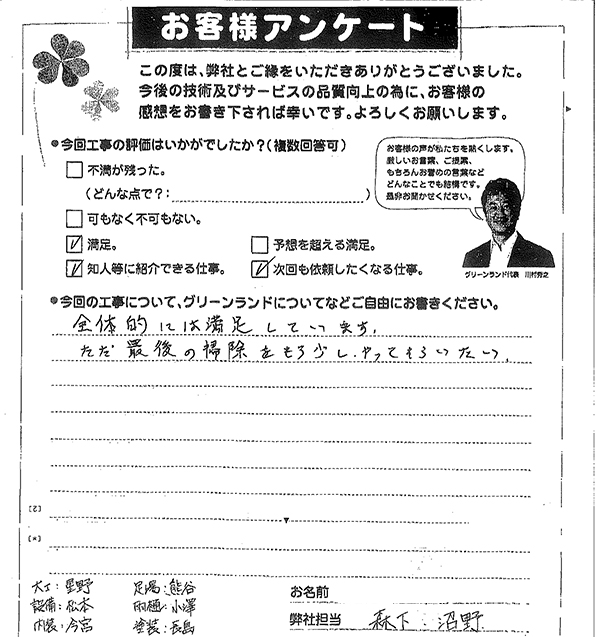 お客様アンケート
この度は、弊社とご縁をいただきありがとうございました。
今後の技術及びサービスの品質向上の為に、お客様の
感想をお書き下されば幸いです。よろしくお願いします。
●今回工事の評価はいかがでしたか?(複数回答可)
不満が残った。
(どんな点で?: )
可もなく不可もない。
満足。
予想を超える満足。
知人等に紹介できる仕事。
次回も依頼したくなる仕事。
お客様の声が私たちを熱くします。
厳しいお言葉、ご提案、
もちろんお誉めの言葉など
どんなことでも結構です。
是非お聞かせください。
グリーンランド代表 川村
●今回の工事について、グリーンランドについてなどご自由にお書きください。
全体的には満足しています。
ただ最後の掃除をもう少しやってもらいたい。
[2]
[*]
大工:星野 足場:熊谷
設備:松本 雨樋:小澤
内装:今宮 塗装:長島
お名前
弊社担当 森下:沼野